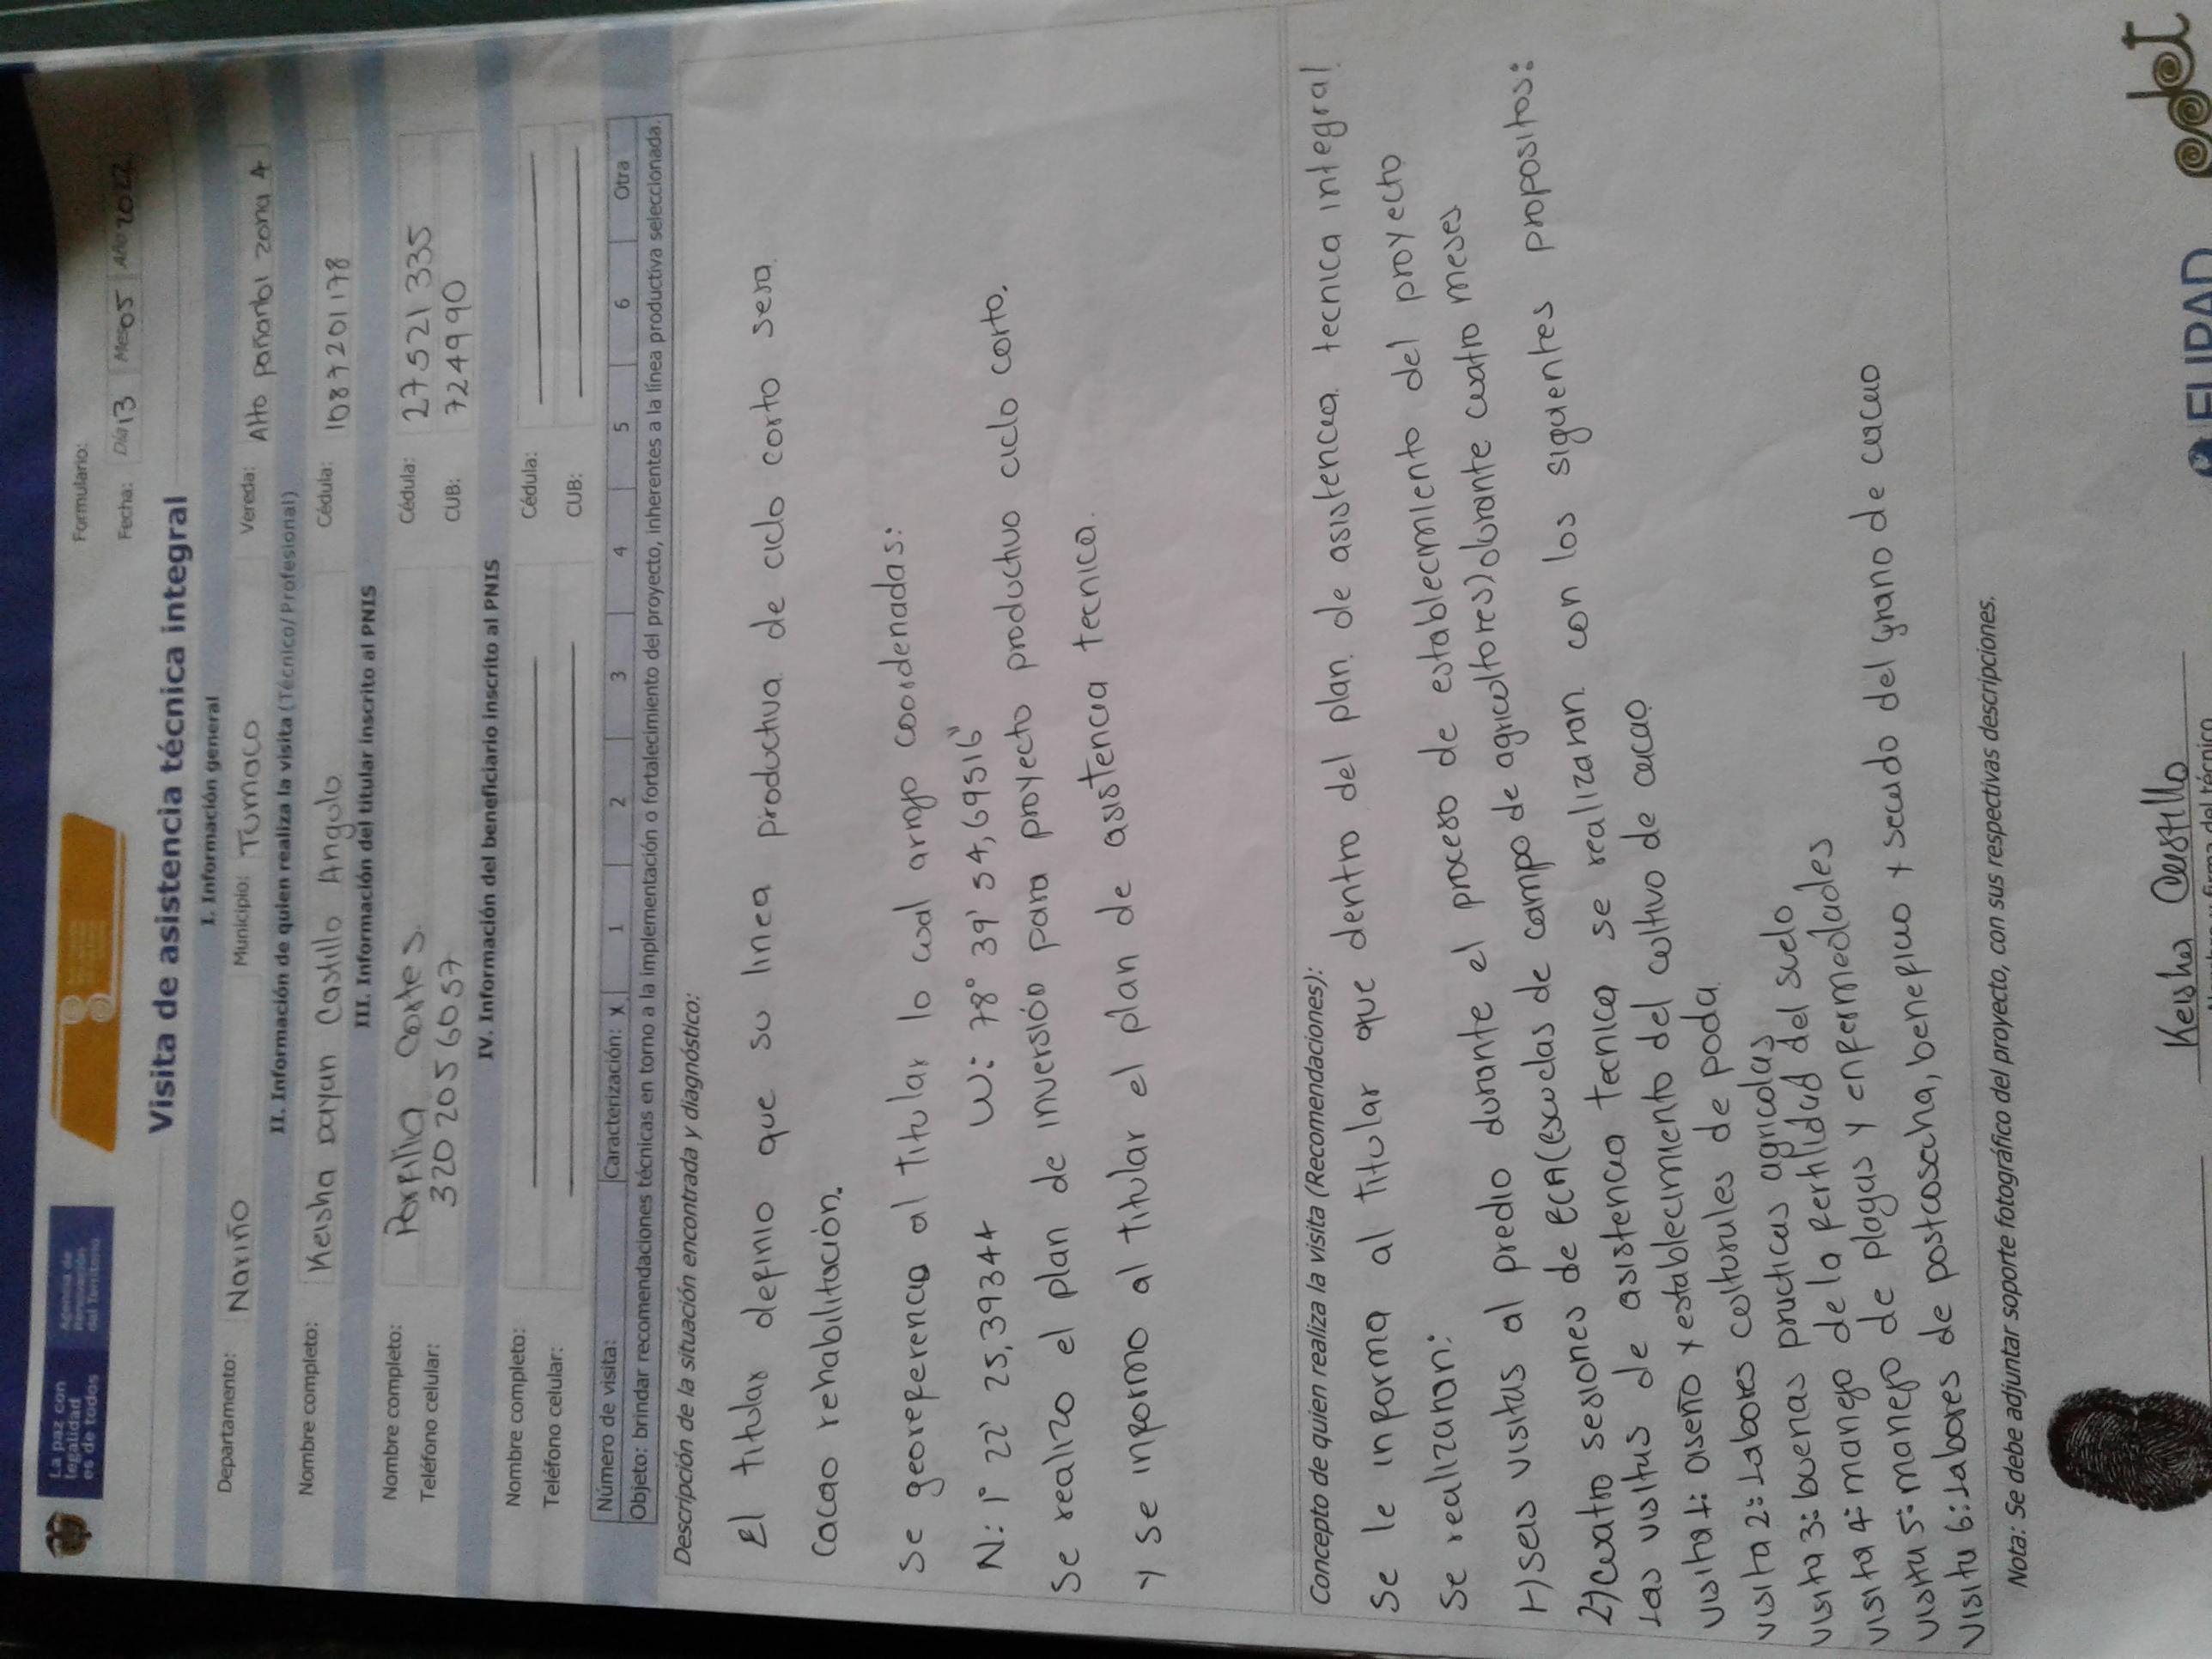 La paz con
legalidad
es de todos
Agencia de
Renovación
del Territorio
Formulario:
Fecha: Día 13 Mes 05 Año 2022
Visita de asistencia técnica integral
I. Información general
Departamento: Nariño Municipio: Tumaco Vereda: Alto pañanbi zona 4
II. Información de quien realiza la visita (Técnico/Profesional)
Nombre completo: Keisha Dayan Castillo Angulo Cédula: 1087201178
III. Información del titular inscrito al PNIS
Nombre completo: Porfilia Cortes. Cédula: 27521335
Teléfono celular: 3202056057 CUB: 7249990
IV. Información del beneficiario inscrito al PNIS
Nombre completo: Cédula:
Teléfono celular: CUB:
Número de visita: Caracterización: X 1 2 3 4 5 6 Otra
Objeto: brindar recomendaciones técnicas en torno a la implementación o fortalecimiento del proyecto, inherentes a la línea productiva seleccionada.
Descripción de la situación encontrada y diagnóstico:
El titular definio que su linea productiva de ciclo corto sera
cacao rehabilitación.
se georeferencia al titular lo cual arrojo coordenadas:
N: 1° 22' 25,39344 W: 78° 39' 54,69516"
Se realizo el plan de inversión para proyecto productivo ciclo corto.
y se informo al titular el plan de asistencia tecnica.
Concepto de quien realiza la visita (Recomendaciones):
Se le informa al titular que dentro del plan de asistencia tecnica integral
Se realizaran:
1) seis visitas al predio durante el proceso de establecimiento del proyecto
2) cuatro sesiones de ECA (escuelas de campo de agricultores) durante cuatro meses
Las visitas de asistencia tecnica se realizaran con los siguientes propositos:
visita 1: Diseño y establecimiento del cultivo de cacao
visita 2: Labores culturales de poda
visita 3: buenas practicas agricolas
visita 4: manejo de la fertilidad del suelo
visita 5: manejo de plagas y enfermedades
visita 6: Labores de postcosecha, beneficio y secado del grano de cacao
Nota: Se debe adjuntar soporte fotográfico del proyecto, con sus respectivas descripciones.
Keisha Castillo
firma del técnico
pdet